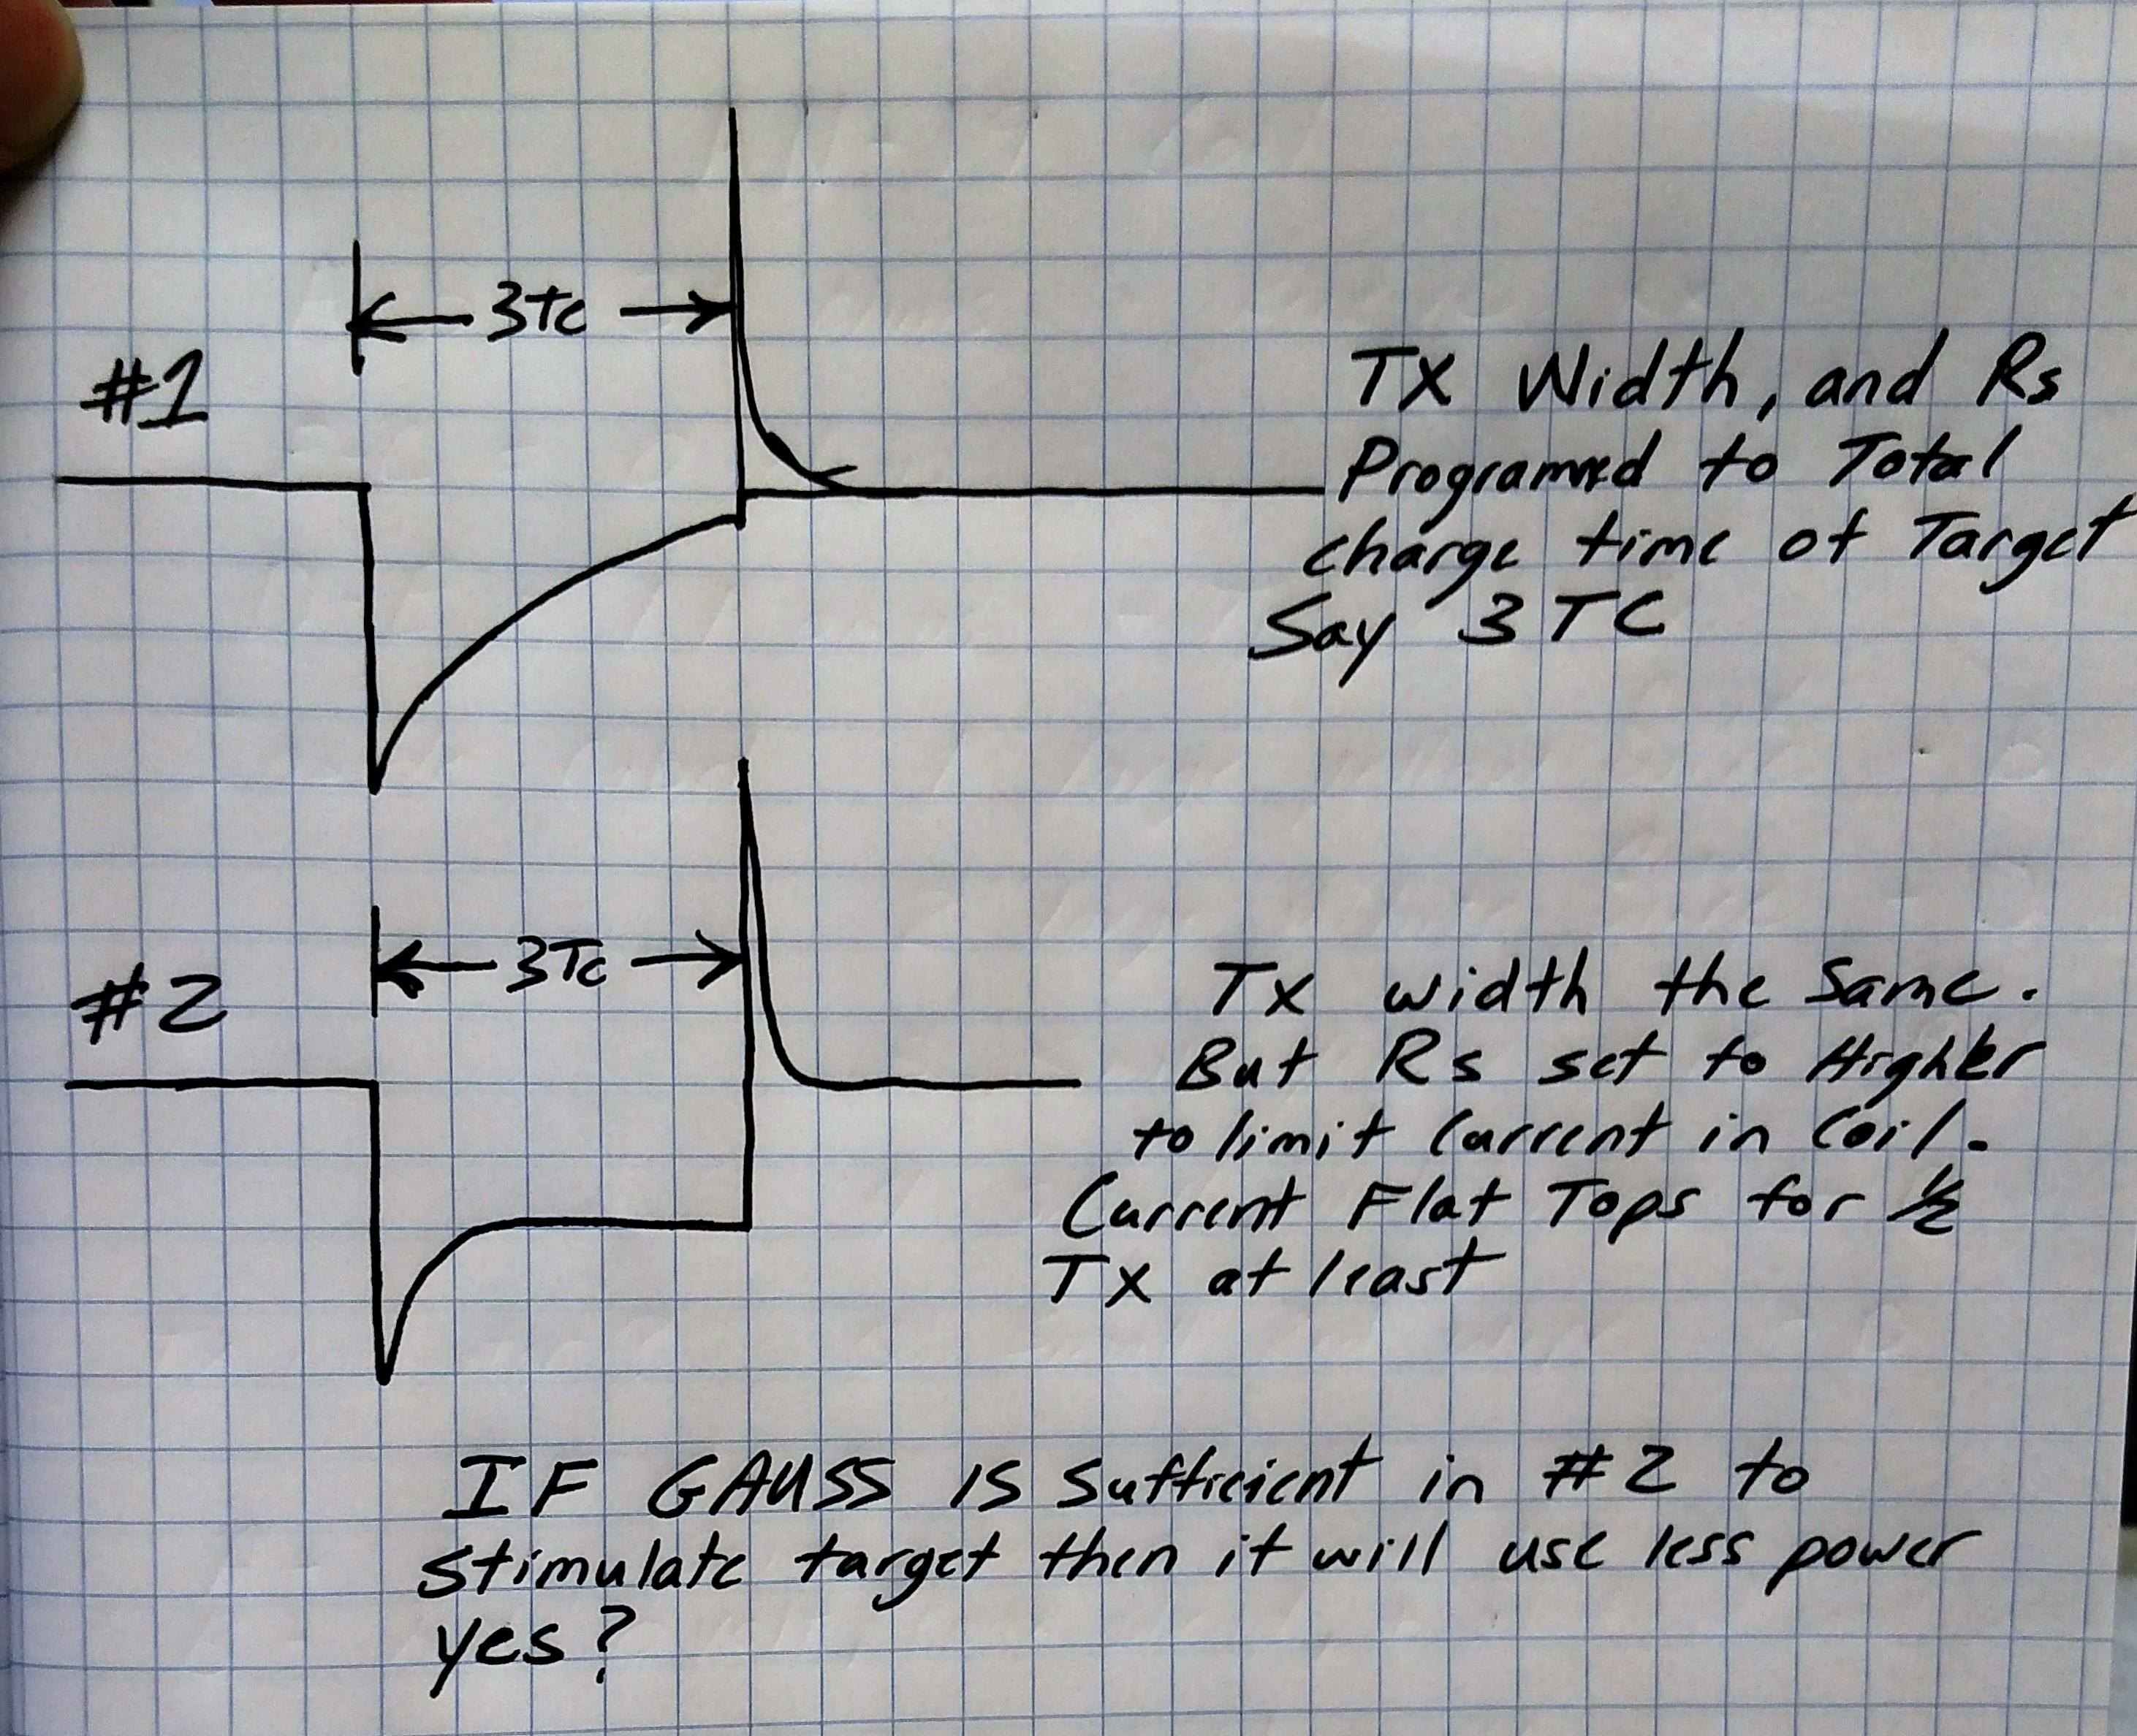 3Tc
#1
TX Width, and Rs
Programed to Total
charge time of Target
Say 3 TC
3Tc
#2
Tx width the same.
But Rs set to Higher
to limit Current in Coil.
Current Flat Tops for ½
TX at least
IF GAUSS IS Sufficient in #2 to
stimulate target then it will use less power
yes?